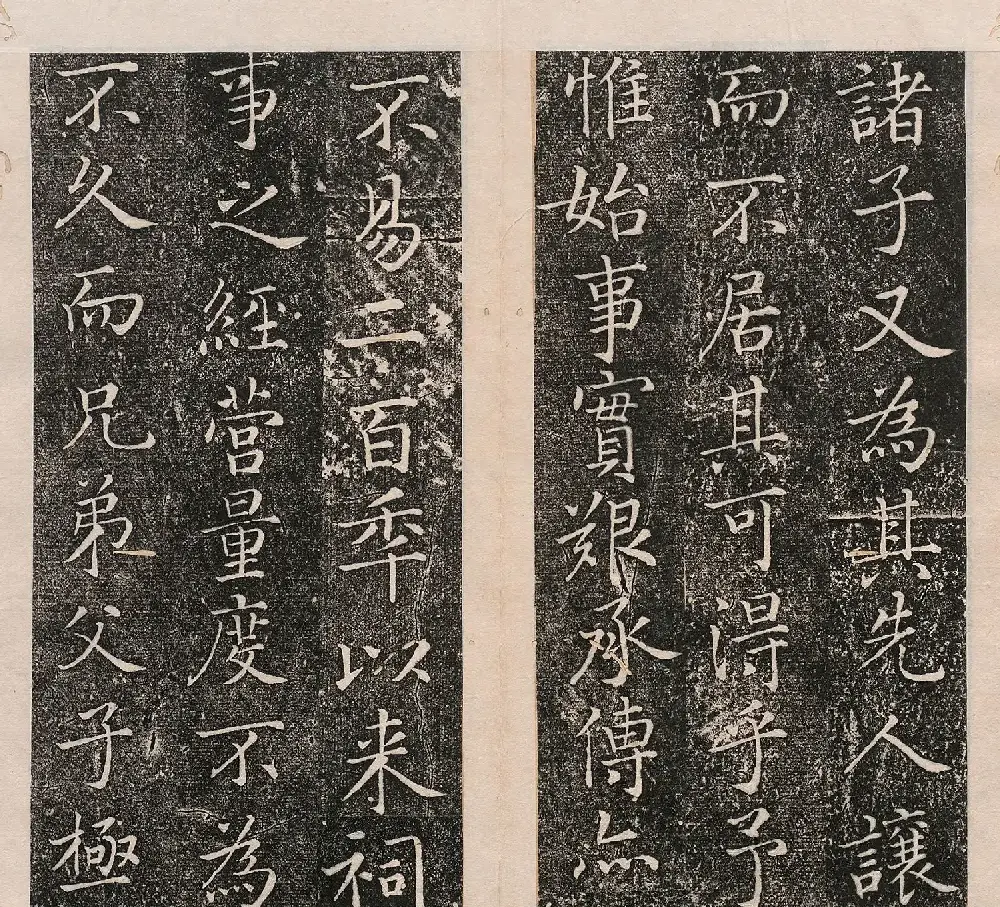 諸子又為其先人讓
而不居其可得乎予
惟始事實艱承傳亦
不易二百年以来祠
事之經營量度不為
不久而兄弟父子極